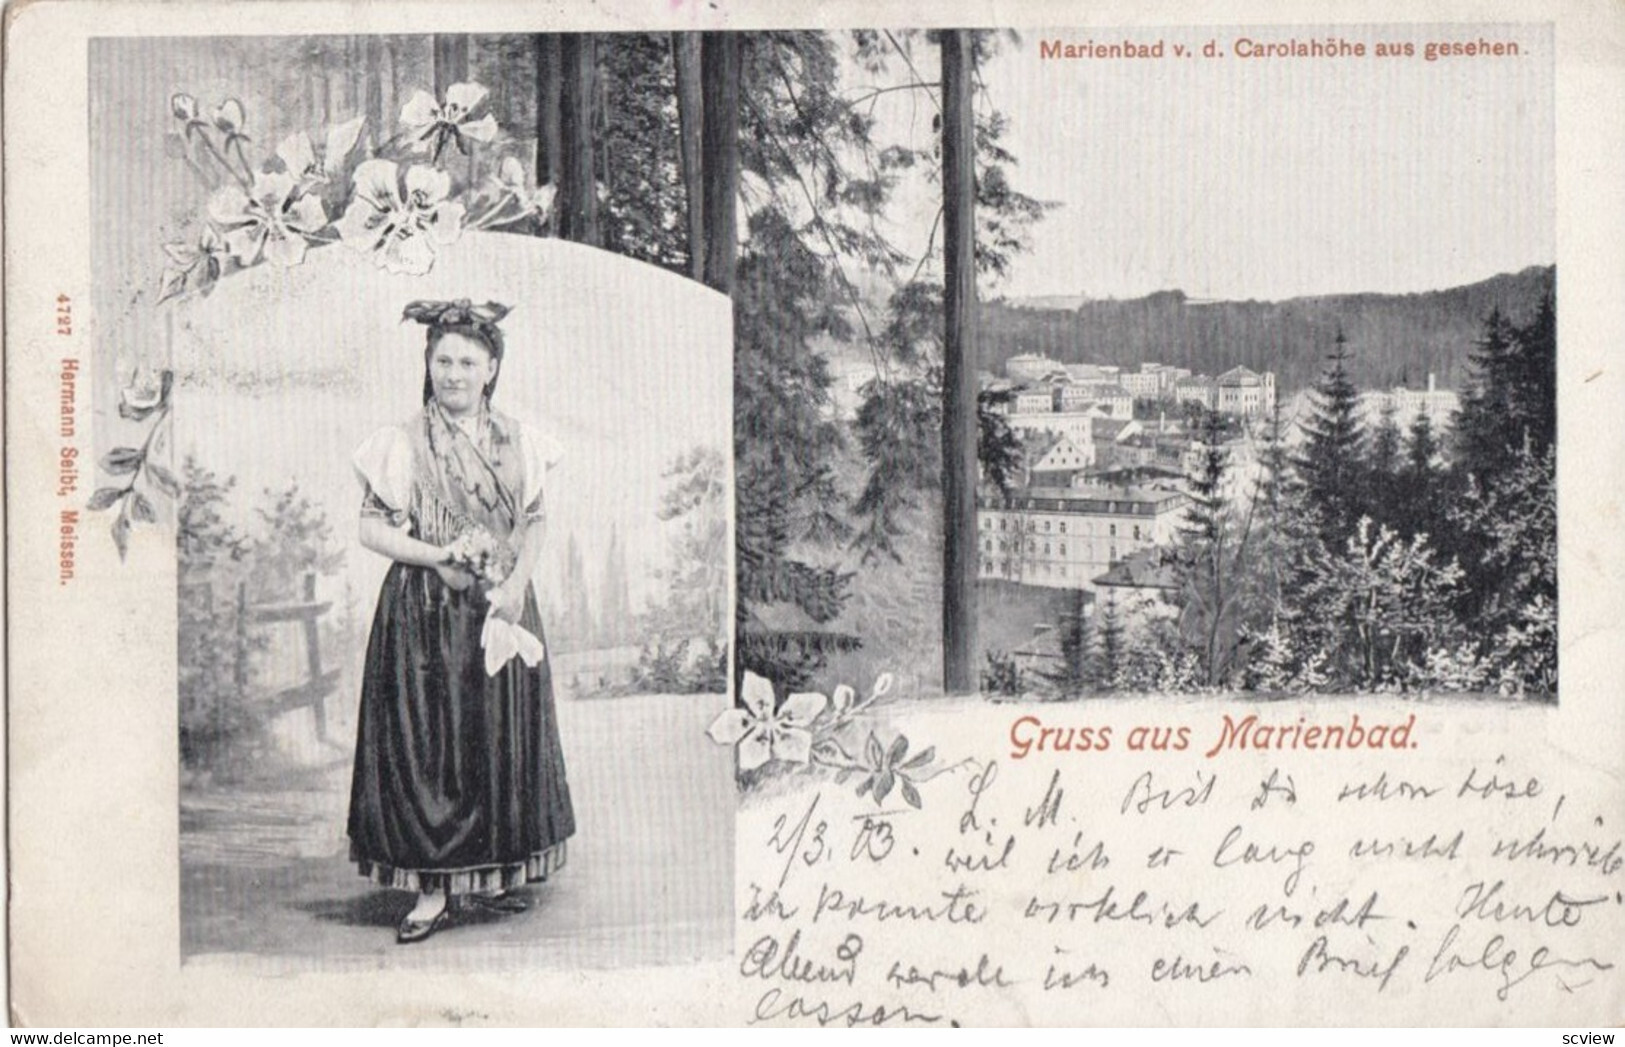 Marienbad v. d. Carolahöhe aus gesehen.
4727 Hermann Seibt, Meissen.
Gruss aus Marienbad.
2/3. 03. L. M. Bist Du schon böse,
weil ich so lang nicht schrieb
Ich konnte wirklich nicht. Heute
Abend werde ich einen Brief folgen
lassen.
scview